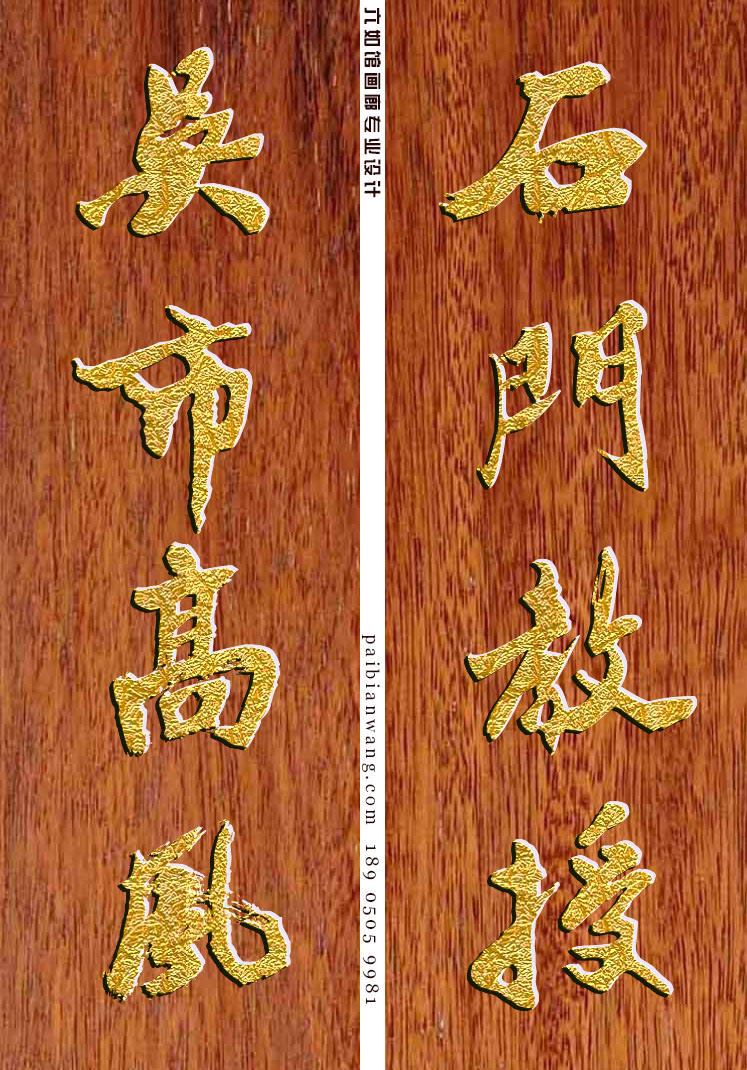 石門教授
吳市高風
六如馆画廊专业设计
paibianwang.com 189 0505 9981